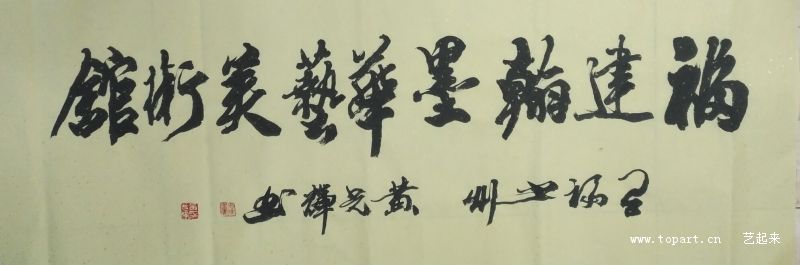 福建翰墨華藝美術館
福州 黄光輝書
www.topart.cn 艺起来